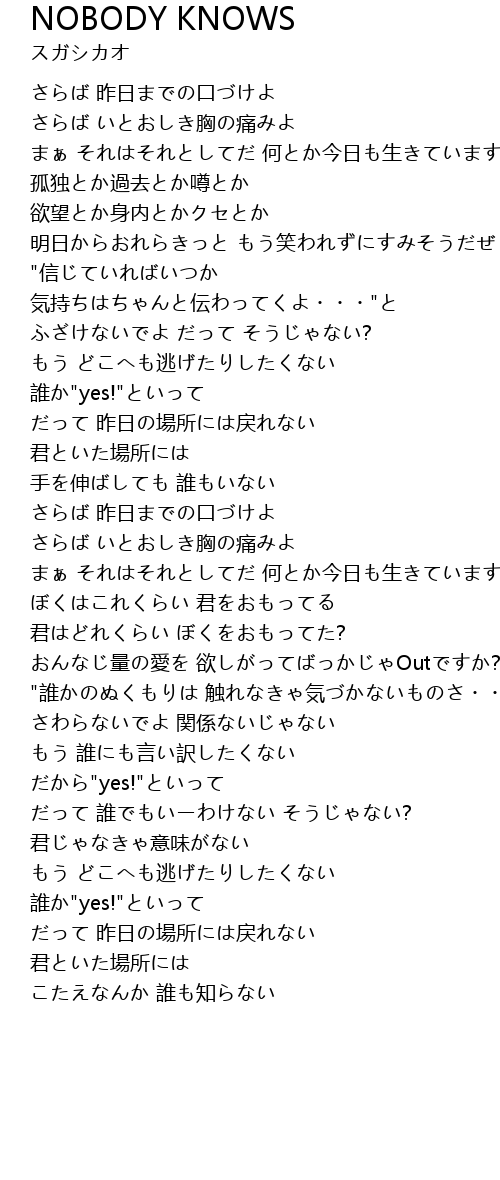 NOBODY KNOWS
スガシカオ
さらば 昨日までの口づけよ
さらば いとおしき胸の痛みよ
まぁ それはそれとしてだ 何とか今日も生きています
孤独とか過去とか噂とか
欲望とか身内とかクセとか
明日からおれらきっと もう笑われずにすみそうだぜ
"信じていればいつか
気持ちはちゃんと伝わってくよ・・・"と
ふざけないでよ だって そうじゃない?
もう どこへも逃げたりしたくない
誰か"yes!"といって
だって 昨日の場所には戻れない
君といた場所には
手を伸ばしても 誰もいない
さらば 昨日までの口づけよ
さらば いとおしき胸の痛みよ
まぁ それはそれとしてだ 何とか今日も生きています
ぼくはこれくらい 君をおもってる
君はどれくらい ぼくをおもってた?
おんなじ量の愛を 欲しがってばっかじゃOutですか?
"誰かのぬくもりは 触れなきゃ気づかないものさ・・
さわらないでよ 関係ないじゃない
もう 誰にも言い訳したくない
だから"yes!"といって
だって 誰でもいーわけない そうじゃない?
君じゃなきゃ意味がない
もう どこへも逃げたりしたくない
誰か"yes!"といって
だって 昨日の場所には戻れない
君といた場所には
こたえなんか 誰も知らない